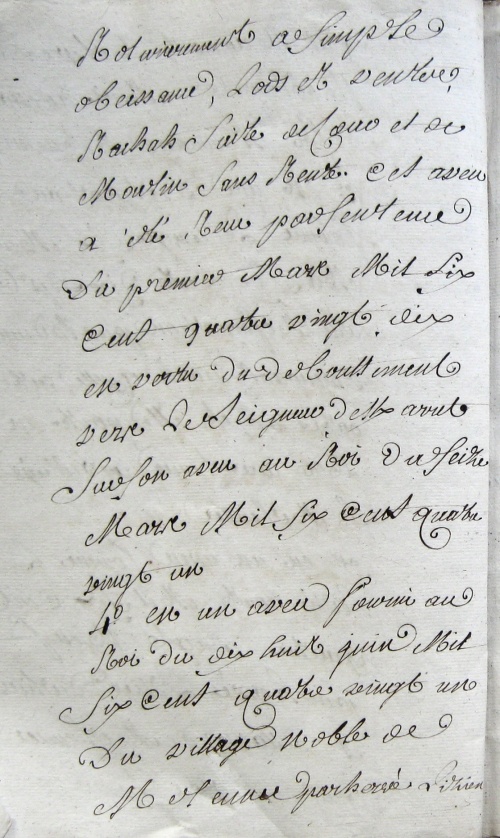 Roturierement a Simple
obeissance, Lods et ventes,
Rachat Suite de Cour et de
Moulin Sans Rente. Cet aveu
a été Recu par Sentence
Du premier Mars Mil Six
Cent quatre vingt dix
en vertu du deboutement
vers Le Seigneur
Sur Son aveu au Roi Du Seize
Mars Mil Six Cent quatre
vingt un
4° en un aveu fourni au
Roi du dix huit juin Mil
Six Cent quatre vingt un
Du village noble de
par hervé